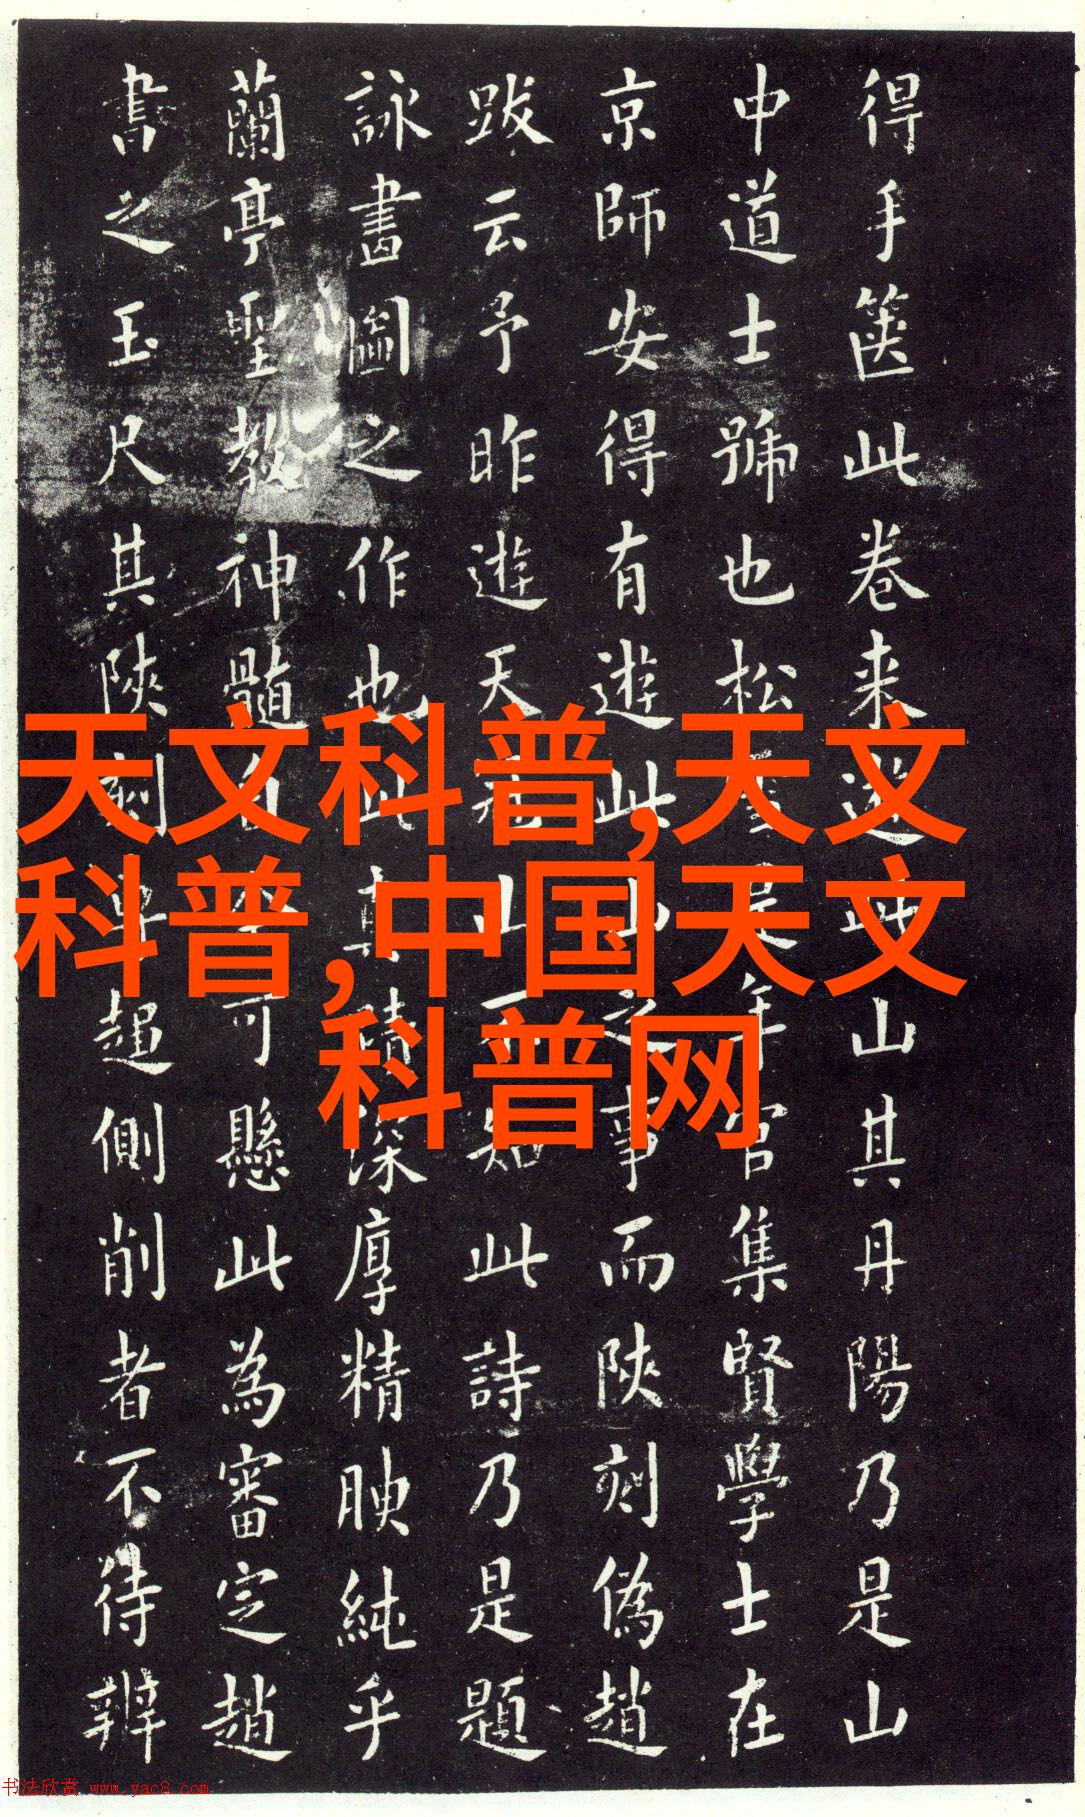 得手篋此卷来遊此山其丹陽乃是山
中道士號也松雪是年官集賢學士在
京師安得有遊此山之事而陝刻偽趙
跋云予昨遊天冠山不知此詩乃是題
詠畫圖之作也此真蹟深厚精腴純乎
蘭亭聖教神髓可懸此為審定趙
書之玉尺其陝刻超側削者不待辨
天文科普,天文
科普,中国天文
科普网
书法欣赏 www.yac8.com